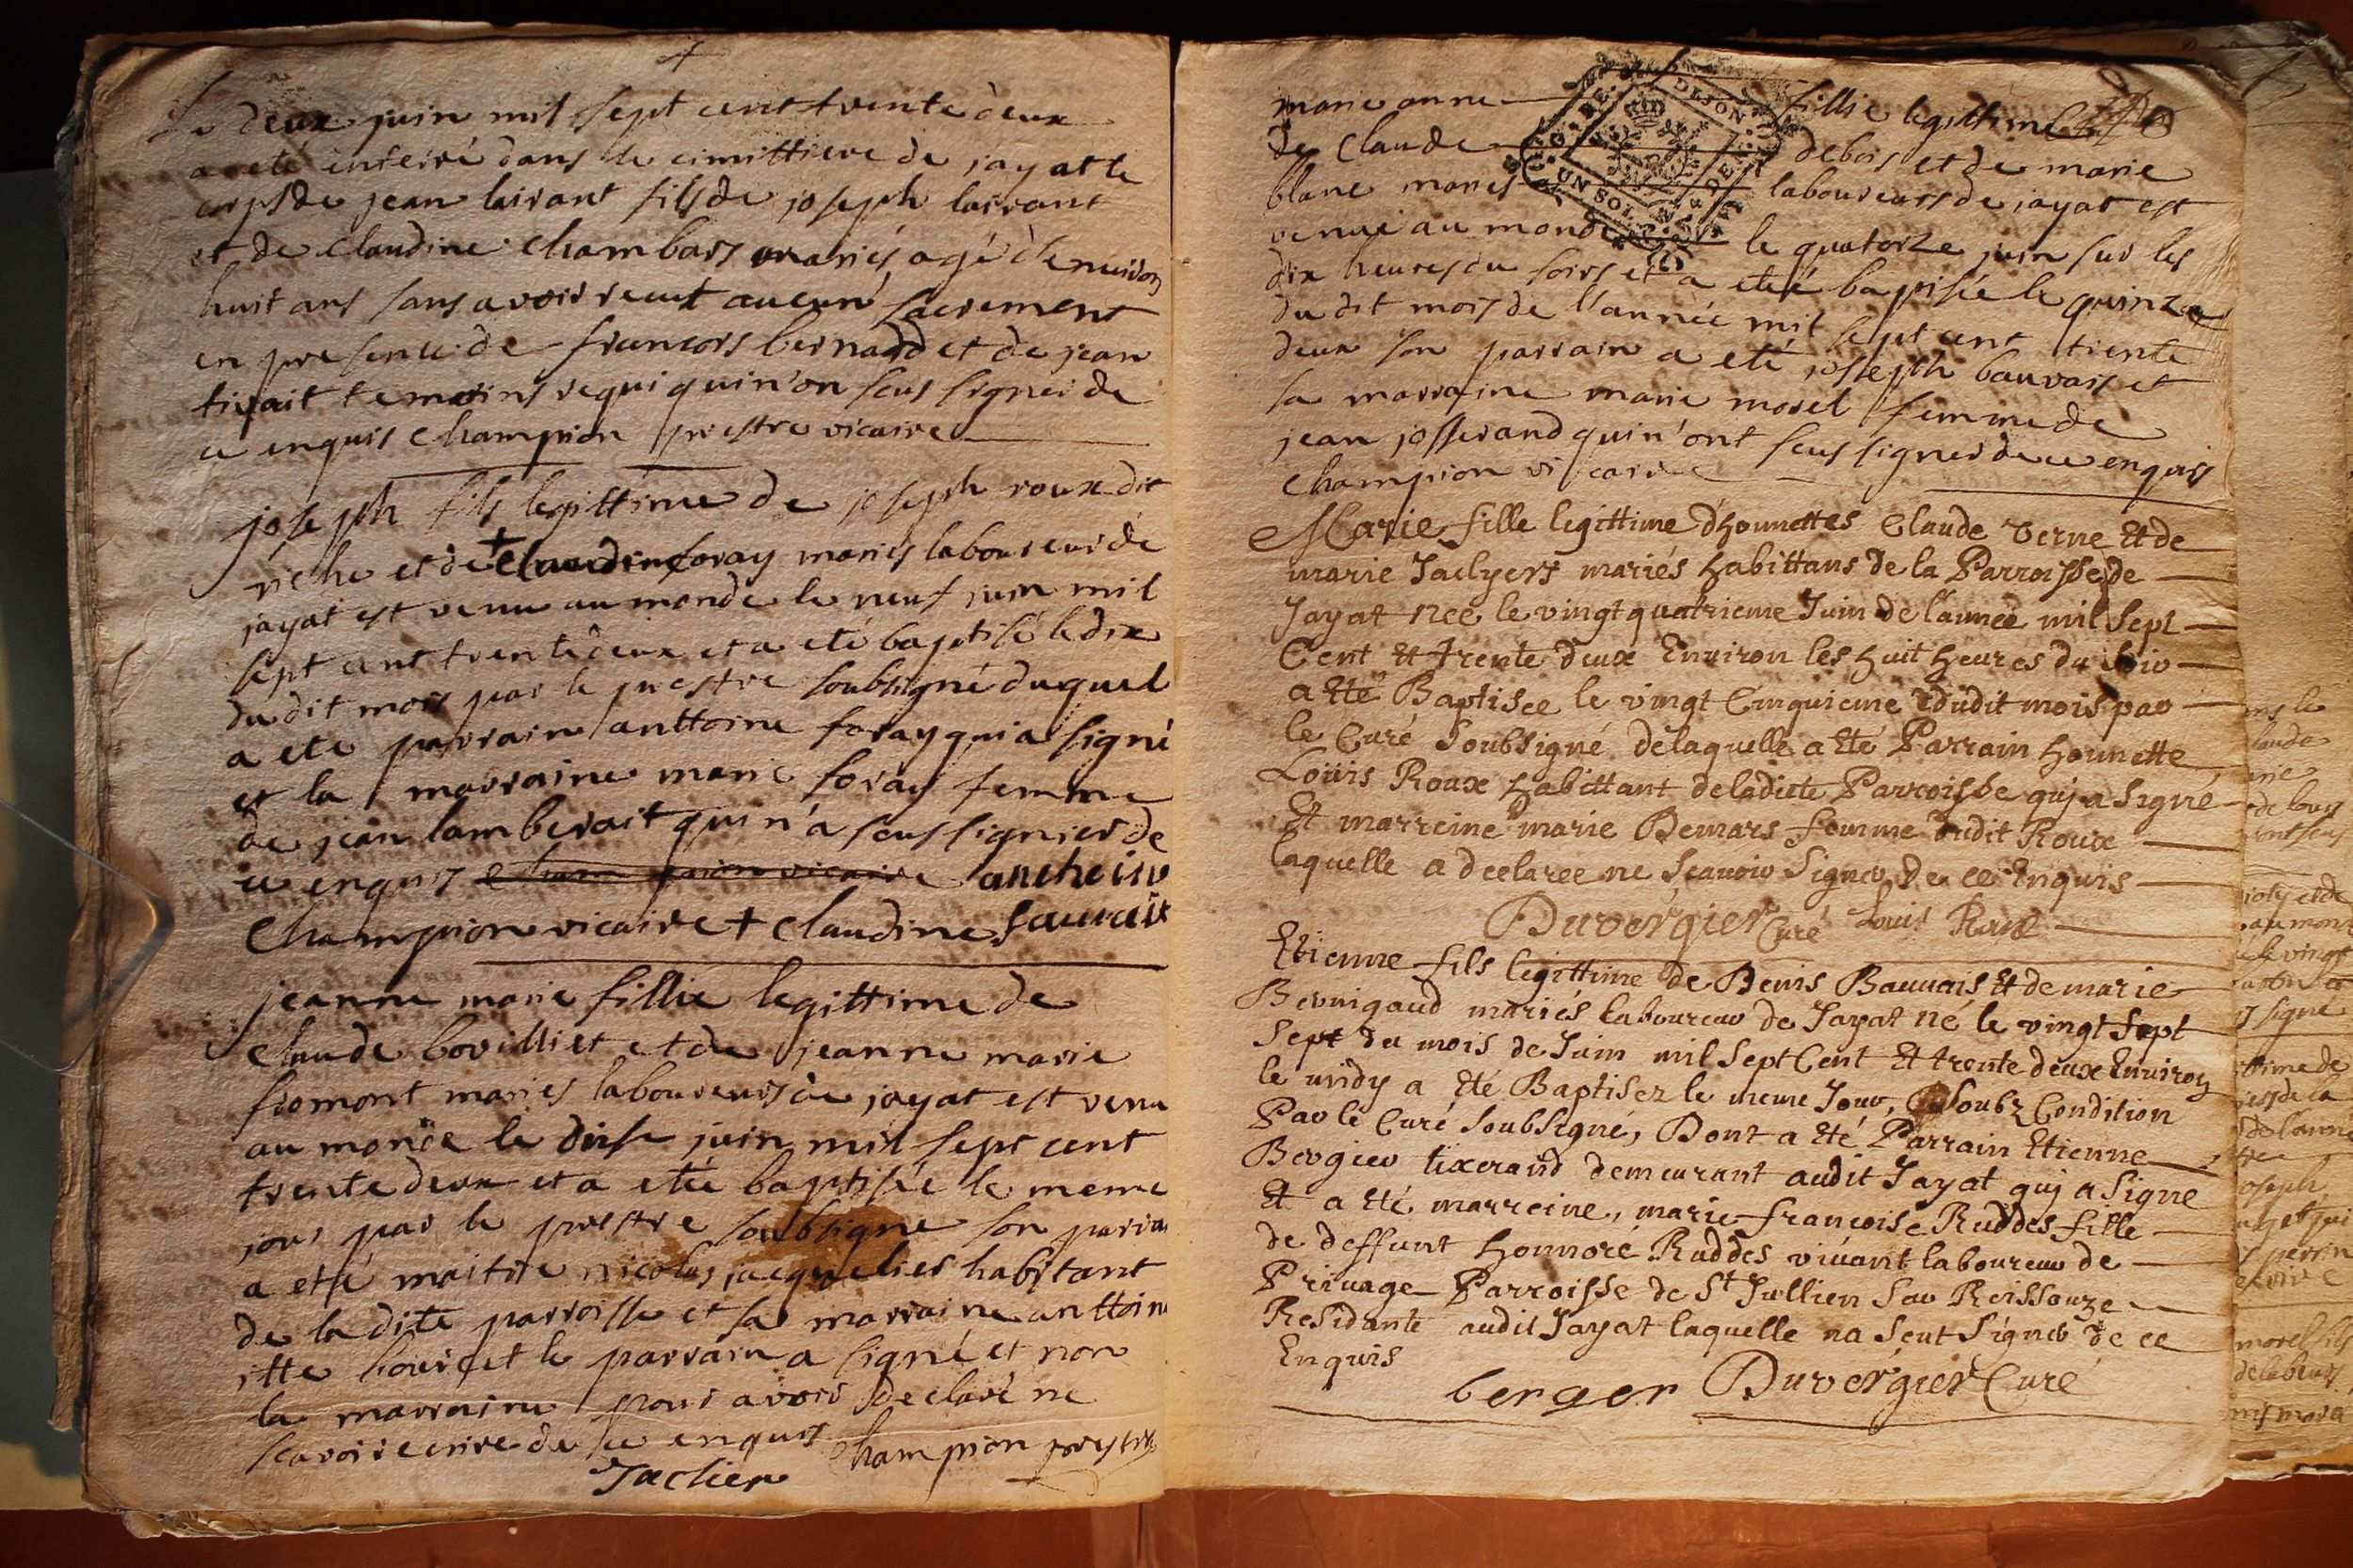 Le deux juin mil sept cent trente deux
a eté enterré dans le cimittiere de jayat le
corps de jean lairant fils de joseph lairant
et de claudine chambars mariés agé d'enuiron
huit ans sans avoir recut aucun sacrement
en presence de francois bernard et de jean
temoins requi quin'on seus signer de
ce enquis champion prestre vicaire
joseph fils legittime de joseph roux dit
riche et de + claudine foray mariés laboureur de
jayat est venu au monde le neuf juin mil
sept cent trente deux et a eté baptisé le dix
du dit mois par le prestre soubsigné duquel
a eté parrain anttoine foray qui a signé
et la marraine marie foray femme
de jean lamberait qui n'a seus signier de
ce enquis
champion vicaire + claudine
jeanne marie fillie legittime de
claude bovilliet et de jeanne marie
fromont mariés laboureurs de jayat est venu
au monde le juin mil sept cent
trente deux et a eteé baptisée le meme
jour par le prestre soubsigné son parrai
a eté maitre nicolas jacquelier habitant
de la dite parroisse et sa marraine anttoin
ette le parrain a signé et non
la marraine pour avoir declaré ne
scavoir ecrire de ce enquis champion prestre
Jaclier
marie anne fillie legittime
de claude debois et de marie
blanc mariés laboureurs de jayat est
venue au monde le quatorze juin sur les
dix heures du soirs et a eteé baptisée le quinze
du dit mois de l'année mil sept cent trente
deux son parrain a eté joseph bauvais et
sa marraine marie morel femme de
jean josserand quin'ont seus signer de ce enquis
champion vicaire
DE DIJON
UN SOL
Marie fille legittime d'hounettes Claude Verne Et de
marie Jaclyers mariés habittans de la Parroisse de
Jayat née le vingt quatrieme Juin de l'année mil sept
Cent Et trente deux Environ les huit heures du soir
a Eté Baptisée le vingt Cinquieme dudit mois par
le Curé soubsigné de laquelle a Eté Parrain hounette
Loüis Roux habittant de ladite Parroisse quj a signé
Et marreine marie Demars femme dudit Roux
laquelle a declaree ne scauoir signer de ce Enquis
Duvergier Curé Louis Roux
Etienne fils legittime de Denis Bauuais Et de marie
Bernigaud mariés laboureur de Jayat né le vingt sept
sept du mois de Juin mil sept Cent Et trente deux Enuiron
le midy a Eté Baptisez le meme Jour, soubz Condition
Par le Curé soubsigné, Dont a Eté Parrain Etienne
Bergier tixerand demeurant audit Jayat quj a signé
Et a Eté marreine, marie francoise Ruddes fille
de deffunt honnoré Ruddes viuant laboureur de
Priuage Parroisse de St Jullien sur Reissouze
Residante audit Jayat laquelle na seut signer de ce
Enquis
berger Duvergier Curé